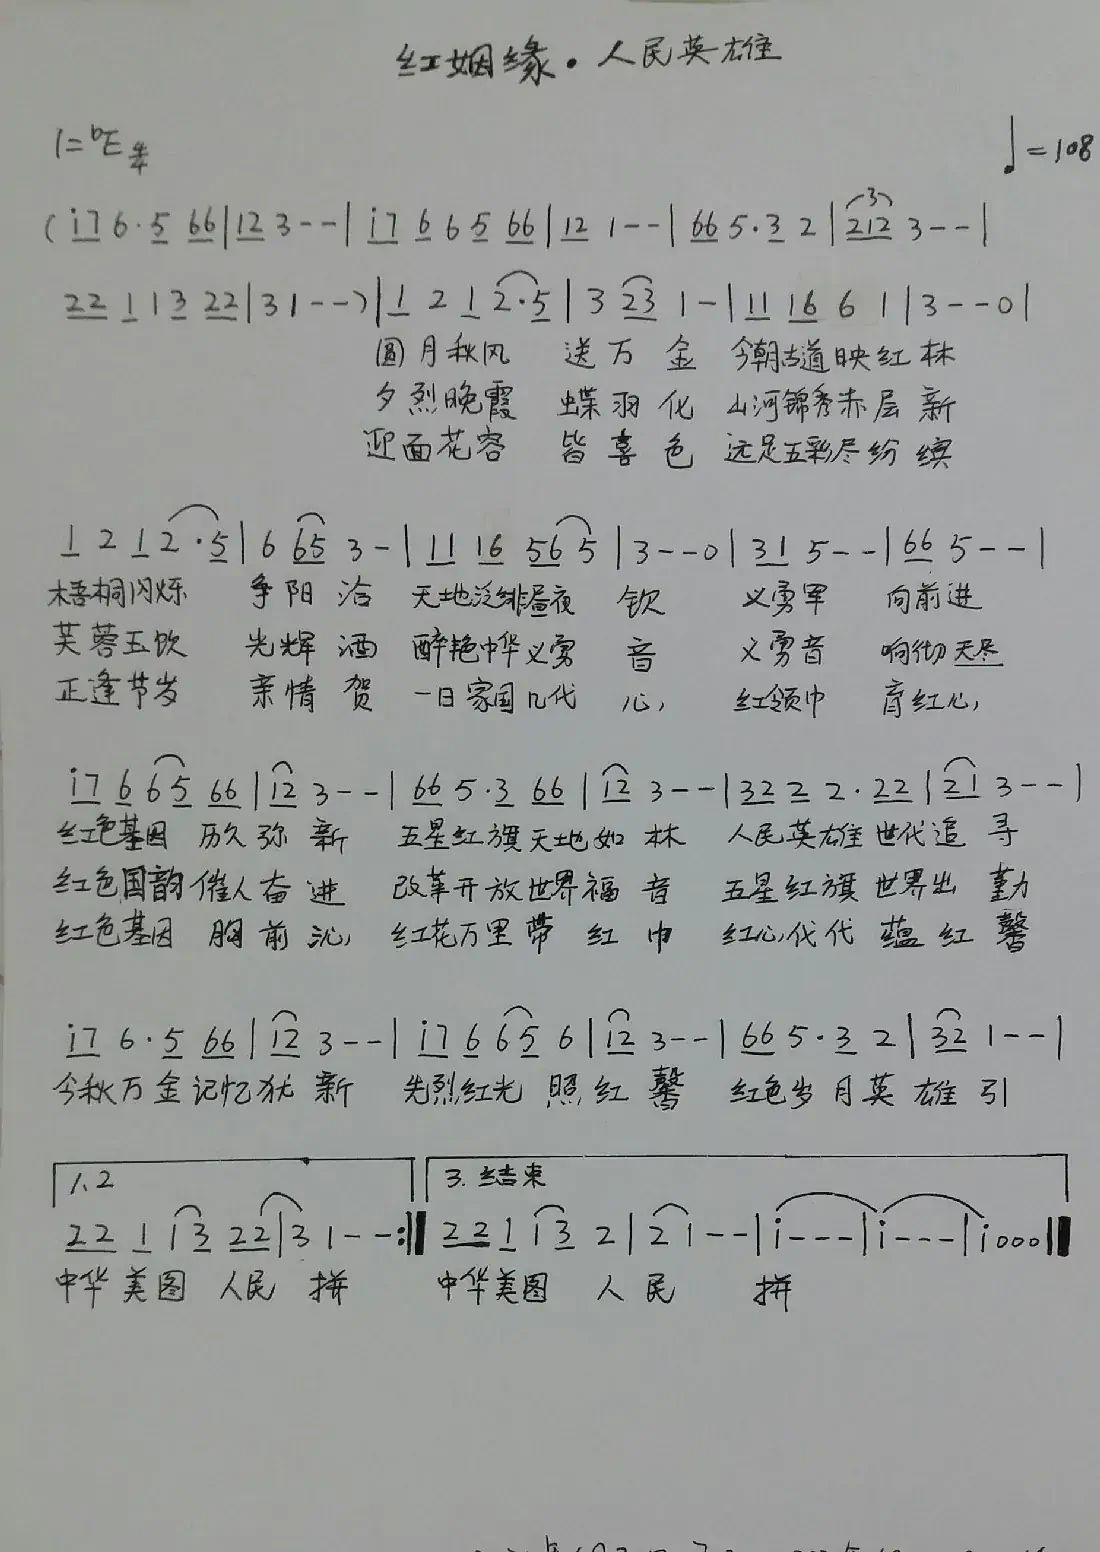 红姻缘·人民英雄
1=♭E 4/4 ♩=108
(i7 6·5 66|12 3--|i7 6 6 5 66|12 1--|66 5·3 2|212 3--|
22 1 1 3 22|3 1--)|1 2 1 2·5|3 23 1-|11 16 6 1|3--0|
圆月秋风 送万金 今朝古道映红林
夕烈晚霞 蝶羽化 山河锦秀赤层新
迎面花容 皆喜色 远足五彩尽纷缤
1 2 1 2·5|6 65 3-|11 16 56 5|3--0|31 5--|66 5--|
梧桐闪烁 争阳洽 天地泛绯昼夜 钦 义勇军 向前进
芙蓉玉饮 光辉洒 醉艳中华义勇 音 义勇音 响彻天尽
正逢节岁 亲情贺 一日家国几代 心, 红领巾 育红心,
i7 6 6 5 66|12 3--|66 5·3 66|12 3--|32 2 2·22|21 3--|
红色基因 历久弥新 五星红旗天地如林 人民英雄世代追寻
红色国韵催人奋进 改革开放世界福音 五星红旗世界出勤
红色基因 胸前沁, 红花万里带红巾 红心代代蕴红馨
i7 6·5 66|12 3--|i7 6 6 5 6|12 3--|66 5·3 2|32 1--|
今秋万金记忆犹新 先烈红光照红馨 红色岁月英雄引
1、2 3.结束
22 1 1 3 22|3 1--:‖22 1 1 3 2|2 1--|i---|i---|i000‖
中华美图 人民拼 中华美图 人民 拼